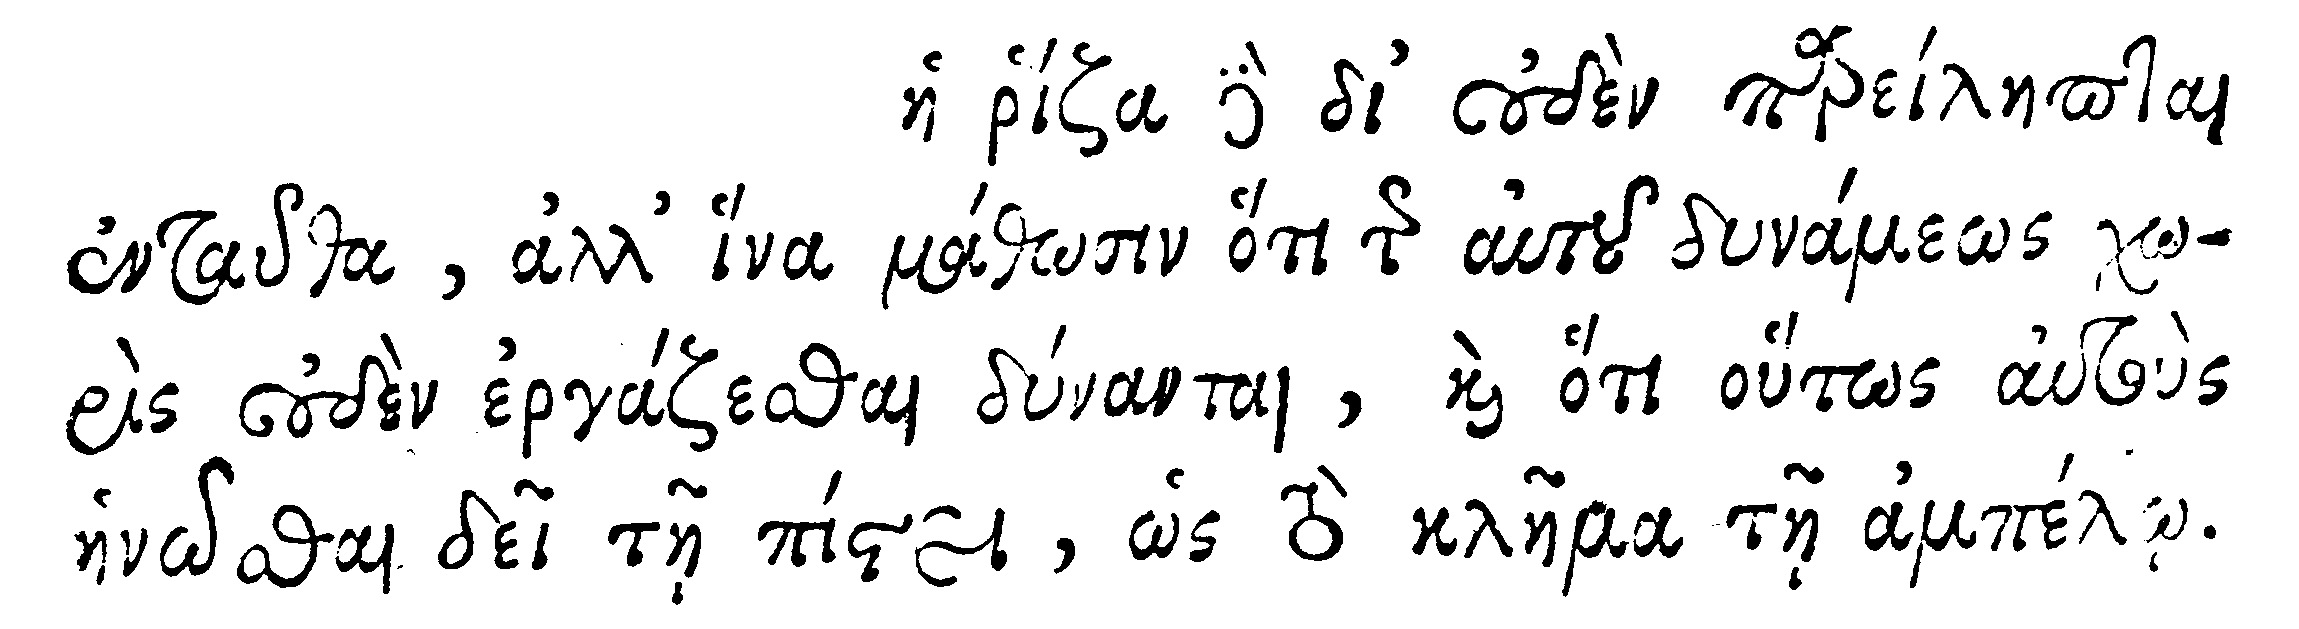 ἡ ῥίζα δὲ δι’ οὐδὲν παρείληπται
ἐνταῦθα, ἀλλ’ ἵνα μάθωσιν ὅτι τῆς αὐτοῦ δυνάμεως χω-
ρὶς οὐδὲν ἐργάζεσθαι δύνανται, καὶ ὅτι οὕτως αὐτοὺς
ἡνῶσθαι δεῖ τῇ πίστει, ὡς τὸ κλῆμα τῇ ἀμπέλῳ.